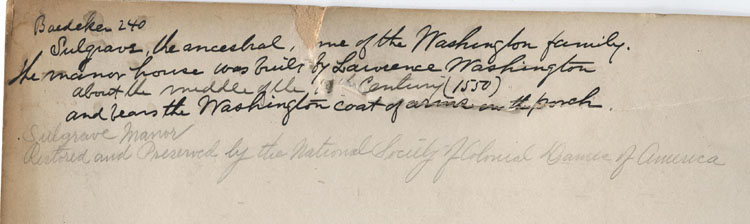 Baedeker 240
Sulgrave, the ancestral, me of the Washington family.
The manor house was built by Lawrence Washington
about the middle of the Century (1550)
and bears the Washington coat of arms on the porch.
Sulgrave Manor
Restored and Preserved by the National Society of Colonial Dames of America